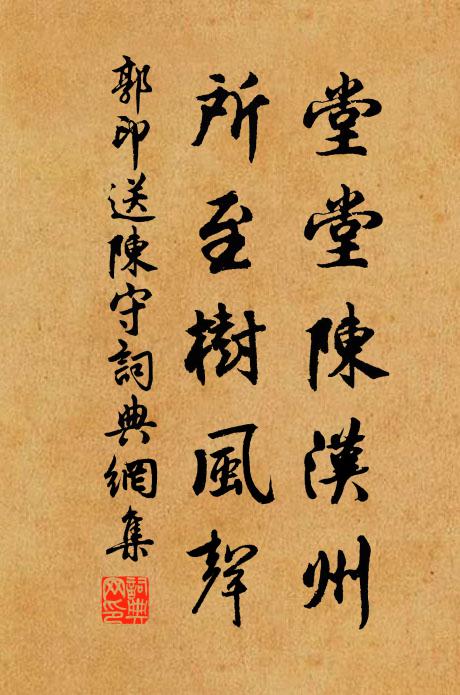 堂堂陳漢州
所至樹風聲
郭印送陳守詞典網集
詞典網印